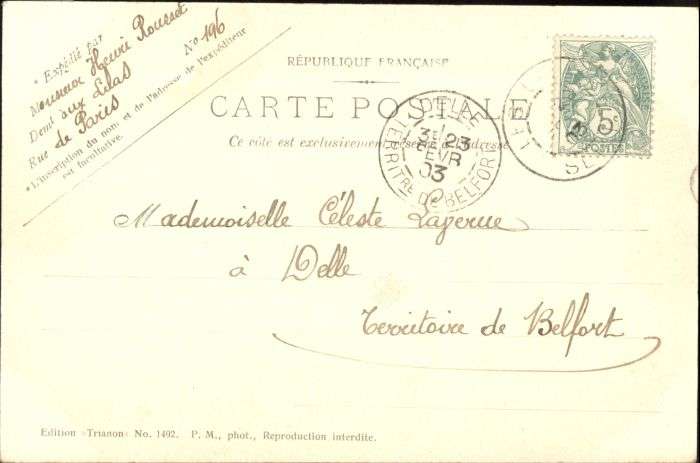 Expédié par
Monsieur Henri Rousset
Demt aux Lilas
Rue de Paris No 196
L'inscription du nom et de l'adresse de l'expéditeur
est facultative.
RÉPUBLIQUE FRANÇAISE
CARTE POSTALE
Ce côté est exclusivement réservé à l'adresse
DELLE
3E 23
FEVR
03
TERRITRE DE BELFORT
5c
POSTES
Mademoiselle Céleste
à Delle
Territoire de Belfort
Edition «Trianon» No. 1492. P. M., phot., Reproduction interdite.